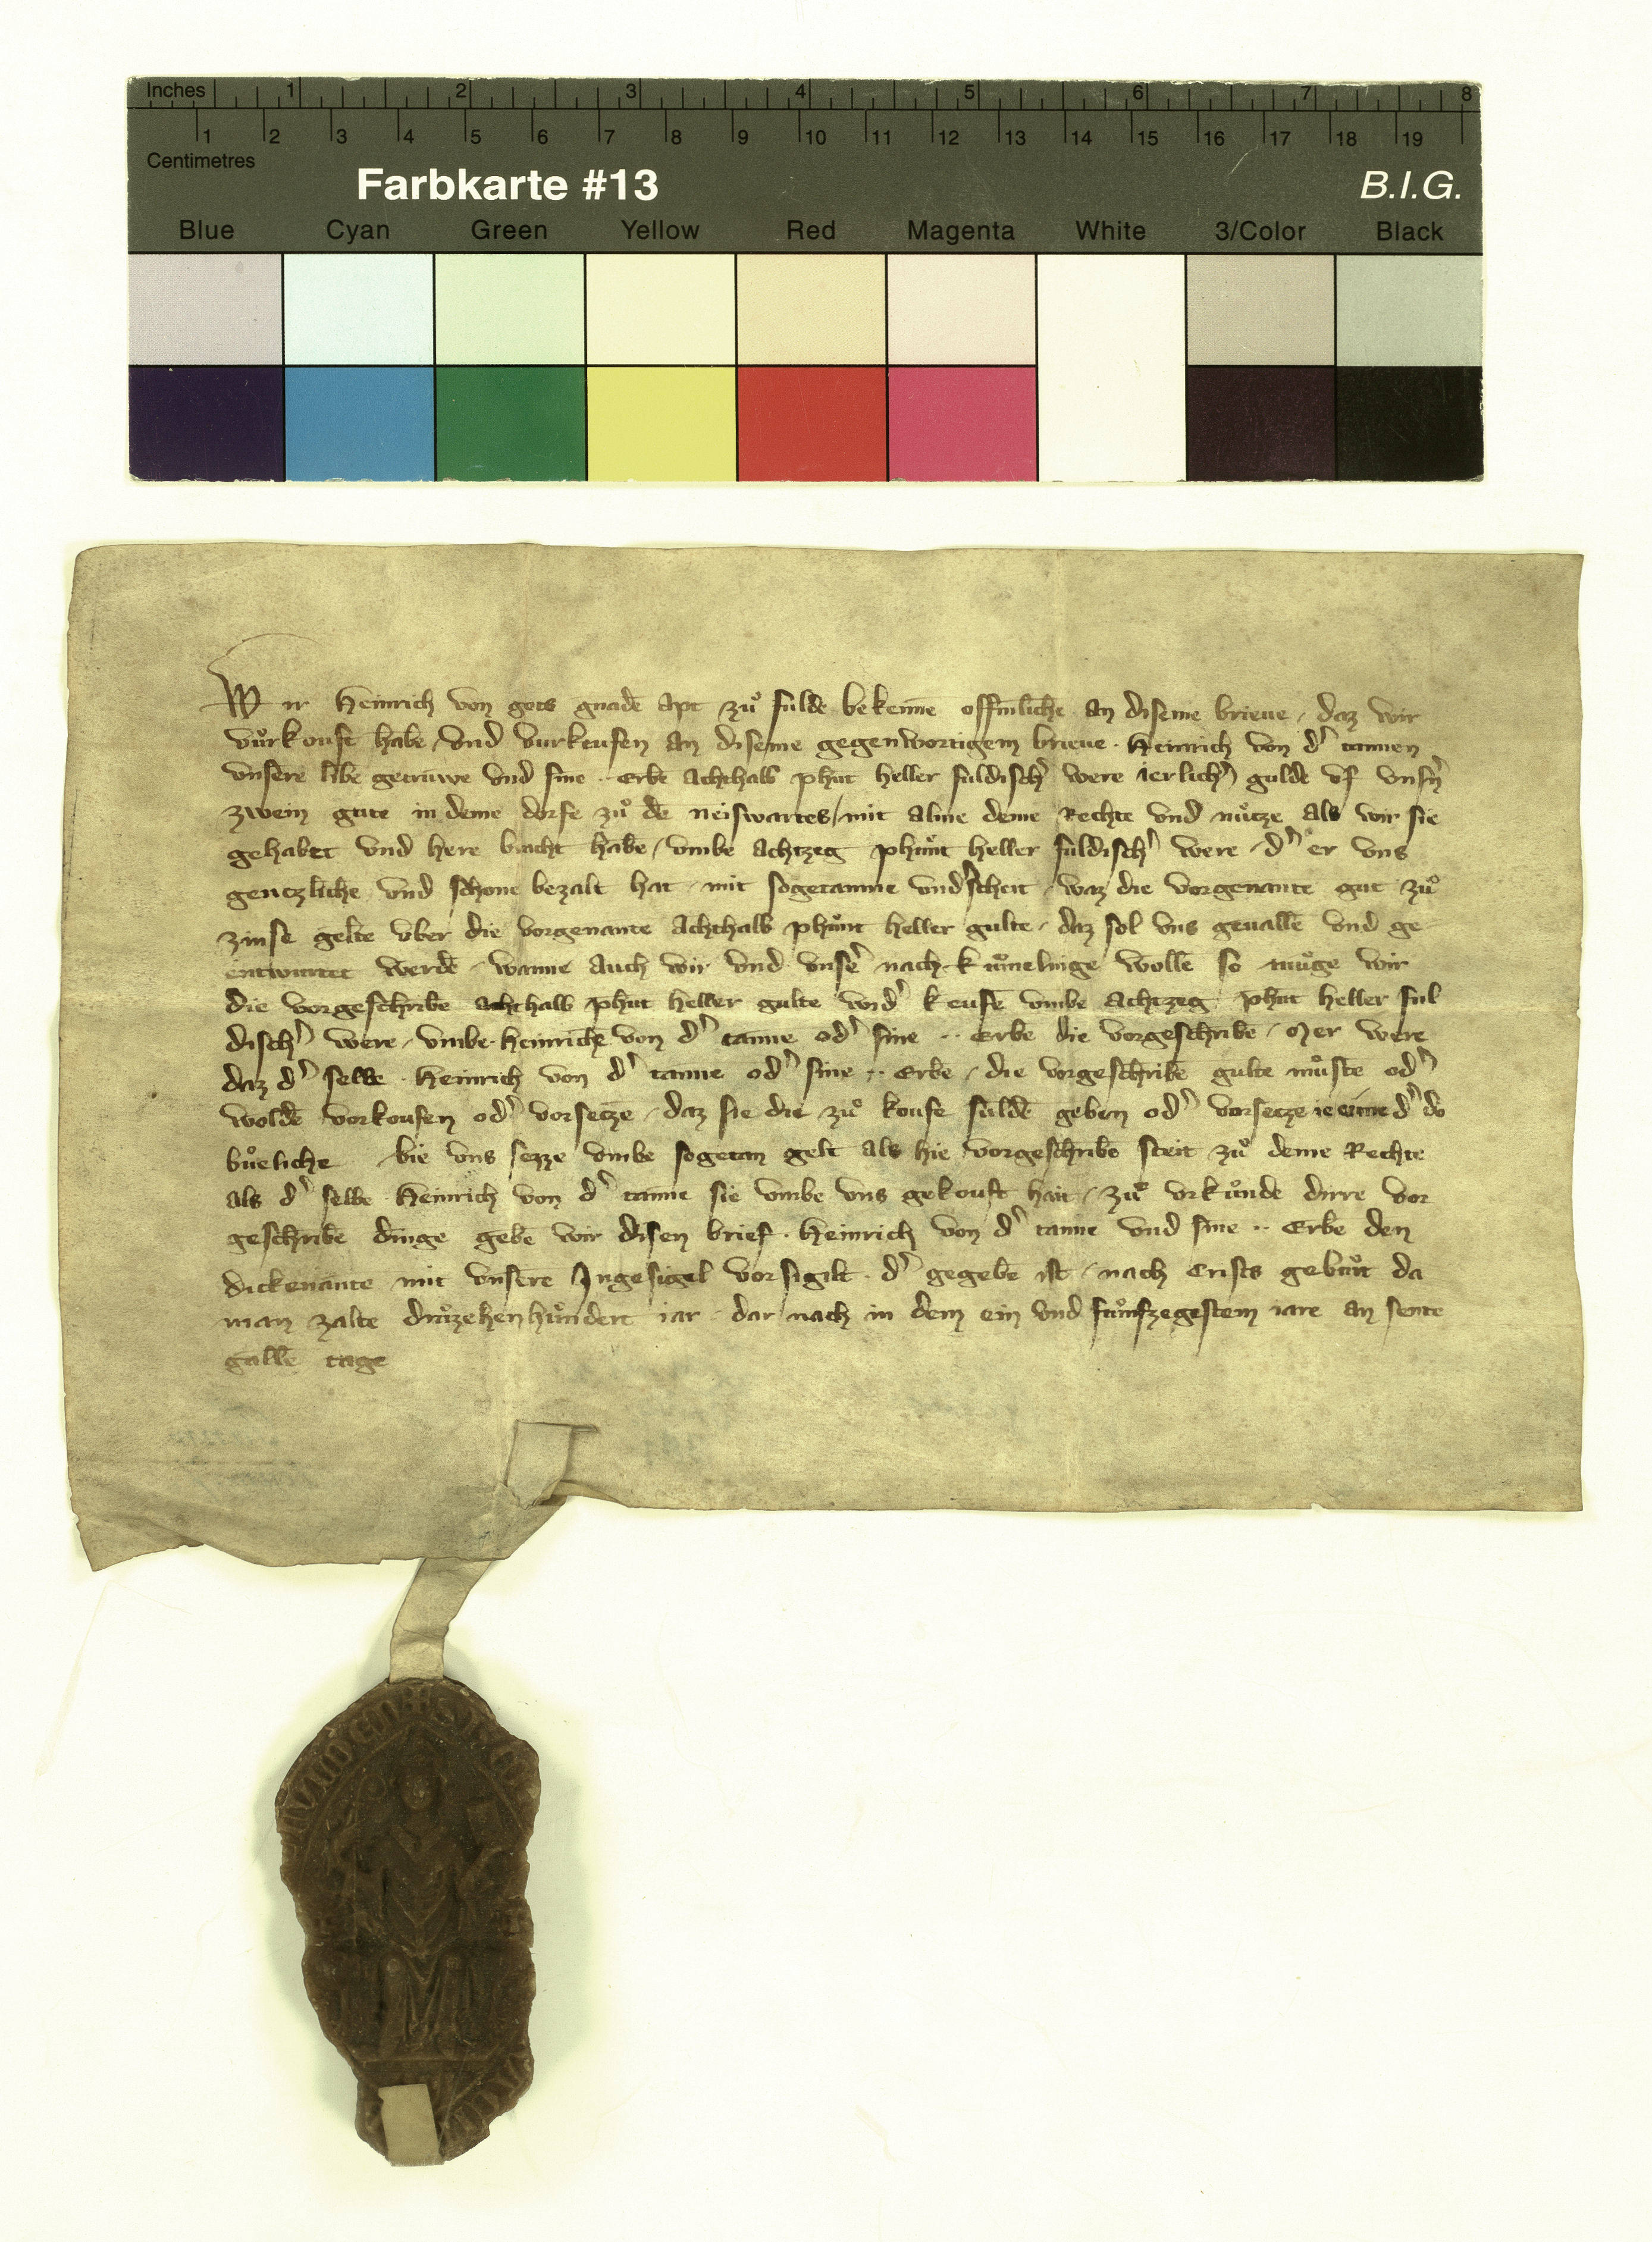 Inches 1 2 3 4 5 6 7 8
1 2 3 4 5 6 7 8 9 10 11 12 13 14 15 16 17 18 19
Centimetres
Farbkarte #13 B.I.G.
Blue Cyan Green Yellow Red Magenta White 3/Color Black
Wir Heinrich von gots gnadē apt zuͦ fulde bekenne offinlichē an diseme brieue / daz wir
vuͦrkouft habē / vnd vurkeufen an diseme gegenwortigem brieue · Heinrich von d' tannen
vnsere libē getruwē vnd sine ·· Erbē Achthalb phūt heller fuldisch' were ierlich' gulde vf vnsn'
zwein gutē in deme dorfe zuͦ dē neiswartes / mit alme deme Rechte vnd nuͦtze als wir sie
gehabet vnd here bracht habē / vmbe achtzeg phuͦnt heller fuldisch' were / d' er vns
gentzliche vnd schone bezalt hat / mit sogetanme vnd'scheit / waz die vorgenante gut zuͦ
zinse geltē vber die vorgenante Achthalb phuͦnt heller gulte / daz sol vns geuallē vnd ge
entwurtet werdē / wanne auch wir vnd vnse' nach kuͦmelinge wollē so muͦge wir
die vorgeschribē achthalb phūt heller gulte wid' keufē vmbe achtzeg phūt heller ful
disch' were / vmbe Heinrichē von d' tanne od' sine ·· Erbē die vorgeschribē / Mer were
daz d' selbe · Heinrich von d' tanne od' sine ·· Erbē / die vorgeschribē gulte muͦstē od'
woldē vorkoufen od' vorsetzē / daz sie die zuͦ koufe suldē geben od' vorsetzē ie eime d' do
buͦeliche bie vns sezze vmbe sogetan gelt als hie vorgeschribē steit zuͦ deme Rechte
als d' selbe Heinrich von d' tanne sie vmbe vns gekouft hait / zuͦ vrkuͦnde dirre vor
geschribē dinge gebē wir disen brief · Heinrich von d' tanne vnd sine ·· Erbē den
dickenantē mit vnsere Ingesigel vorsigilt · d' gegebē ist / nach Crists gebuͦrt da
man zalte druͦzehenhuͦndert iar / dar nach in dem ein vnd fuͦnfzegestem iare an sente
gallē tage